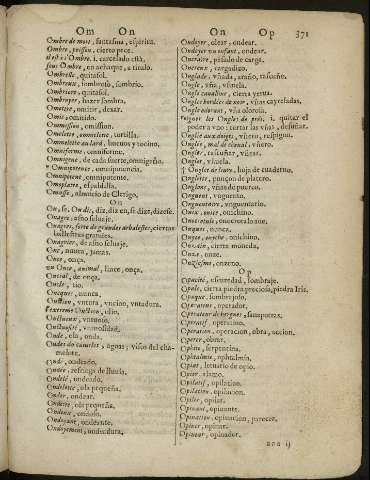 Om On
Ombre de mort, fantasma, espiritu.
Ombre, poisson, cierto pece.
Il est à l'Ombre. i. encarcelado está.
sous Ombre, so achaque, a titulo.
Ombrelle, quitasol.
Ombreux, sombroso, sombrio.
Ombriere, quitasol.
Ombroyer, hazer sombra.
Omettre, omitir, dexar.
Omis, omitido.
Ommission, omission.
Omelette, tortilla.
Ommelette au lard, hueuos y tocino.
Omniforme, omniforme.
Omnigene, de cada suerte, omnigeno.
Omnipotence, omnipotencia.
Omnipotent, omnipotente.
Omoplatre, espaldilla.
On
On, se, On dit, diz, diz en, se dize, dizese.
Onagre, asno saluaje.
Onagres, sorte de grandes arbalestes, ciertos
ballestras grandes.
Onagrier, de asno saluaje.
Onc, nunca, jamas.
Once, onça.
un Once, animal, lince, onça.
Oncial, de onça.
Oncle, tio.
Oncques, nunca.
Onction, vntura, vncion, vntadura.
l'extreme Onction, olio.
Onctueux, vntuoso.
Onctuosité, vntuosidad.
Onde, ola, onda.
Ondes du camelot, aguas, visos del cha-
melote.
Ondé, ondeado.
Ondée, refriega de lluuia.
Ondelé, ondeado.
Ondelette, ola pequeña.
Onder, ondear.
Ondeux, ondoso.
Ondoyant, ondeante.
Ondoyement, ondeadura.
On Op 371
Ondoyer, olear, ondear.
Ondoyer un enfant, ondear.
Oneraire, pesado de carga.
Onereux, cargadizo.
Onglade, vñada, araño, rascuño.
Ongle, vña, vñuela.
Ongle caualline, cierta yerua.
Ongle odorant, vña olorosa.
rogner les Ongles de prés. i. quitar el
poder a vno: cortar las vñas, desuñar.
Onglée, mal de cheual, vñero.
Ongler, rascuñar, vñear.
Onglet, vñuela.
† Onglet de liure, hoja de cuaderno.
Onglette, punçon de platero.
Onglons, vñas de puerco.
Onguent, vnguento.
Onguentaire, vnguentario.
Onocrotale, onocrotalo aue.
Onques, nunca.
Onyce, onyche, onichino.
Onzain, cierta moneda.
Onze, onze.
Onziesme, onzeno.
Op
Opacité, escuridad, sombraje.
Opale, cierta piedra preciosa, piedra Iris.
Opaque, sombrajoso.
Operateur, operador.
Operateur de hargnes, sanapotras.
Operatif, operatiuo.
Operation, operacion, obra, accion.
Operer, obrar.
Ophite, serpentina.
Ophtalmie, ophtalmia.
Opiat, letuario de opio.
Opilatif, opilatiuo.
Opilation, opilacion.
Opiler, opilar.
Opinant, opinante.
Opination, opinacion, parecer.
Opiner, opinar.
Opineur, opinador.
aaa ij